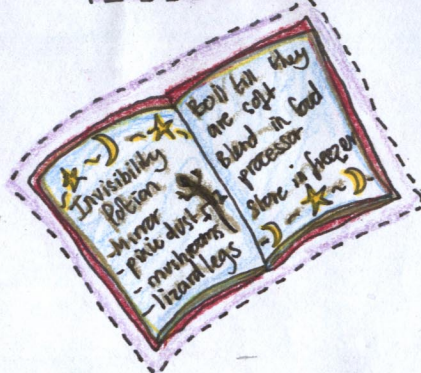 Invisibility
Potion
- Mirror
- pixie dust
- mushrooms
- lizard legs
Boil till they
are soft
Blend in food
processor
Store in freezer